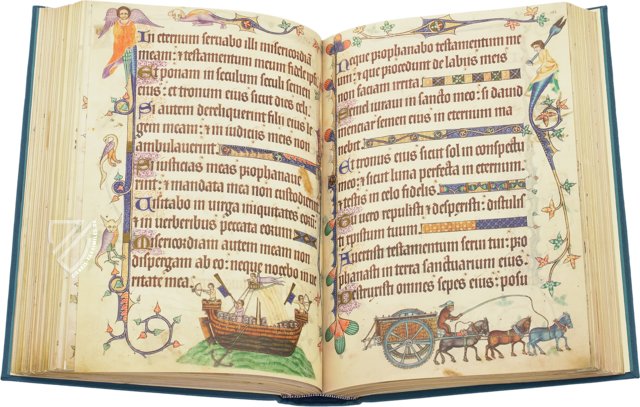 In eternum servabo illi misericordiā
meam: & testamentum meum fidele ipsi
Et ponam in seculum seculi semen
eius: et tronum eius sicut dies celi
Si autem dereliquerint filii eius le
gem meam: & in iudiciis meis non
ambulaverint
Si iusticias meas prophanave
rint: & mandata mea non custodierint
Visitabo in virga iniquitates eorū
& in verberibus peccata eorum
Misericordiam autem meam non
dispergam ab eo: neque nocebo in ve
ritate mea
Neque prophanabo testamentum me
um: & que procedunt de labiis meis
non faciam irrita
Semel iuravi in sancto meo: si david
menciar semen eius in eternum ma
nebit
Et tronus eius sicut sol in conspectu
meo: & sicut luna perfecta in eternum
& testis in celo fidelis
Tu vero repulisti & despexisti: distulis
ti xpistum tuum
Avertisti testamentum servi tui: pro
phanasti in terra sanctuarium eius
Destruxisti omnes sepes eius: posu